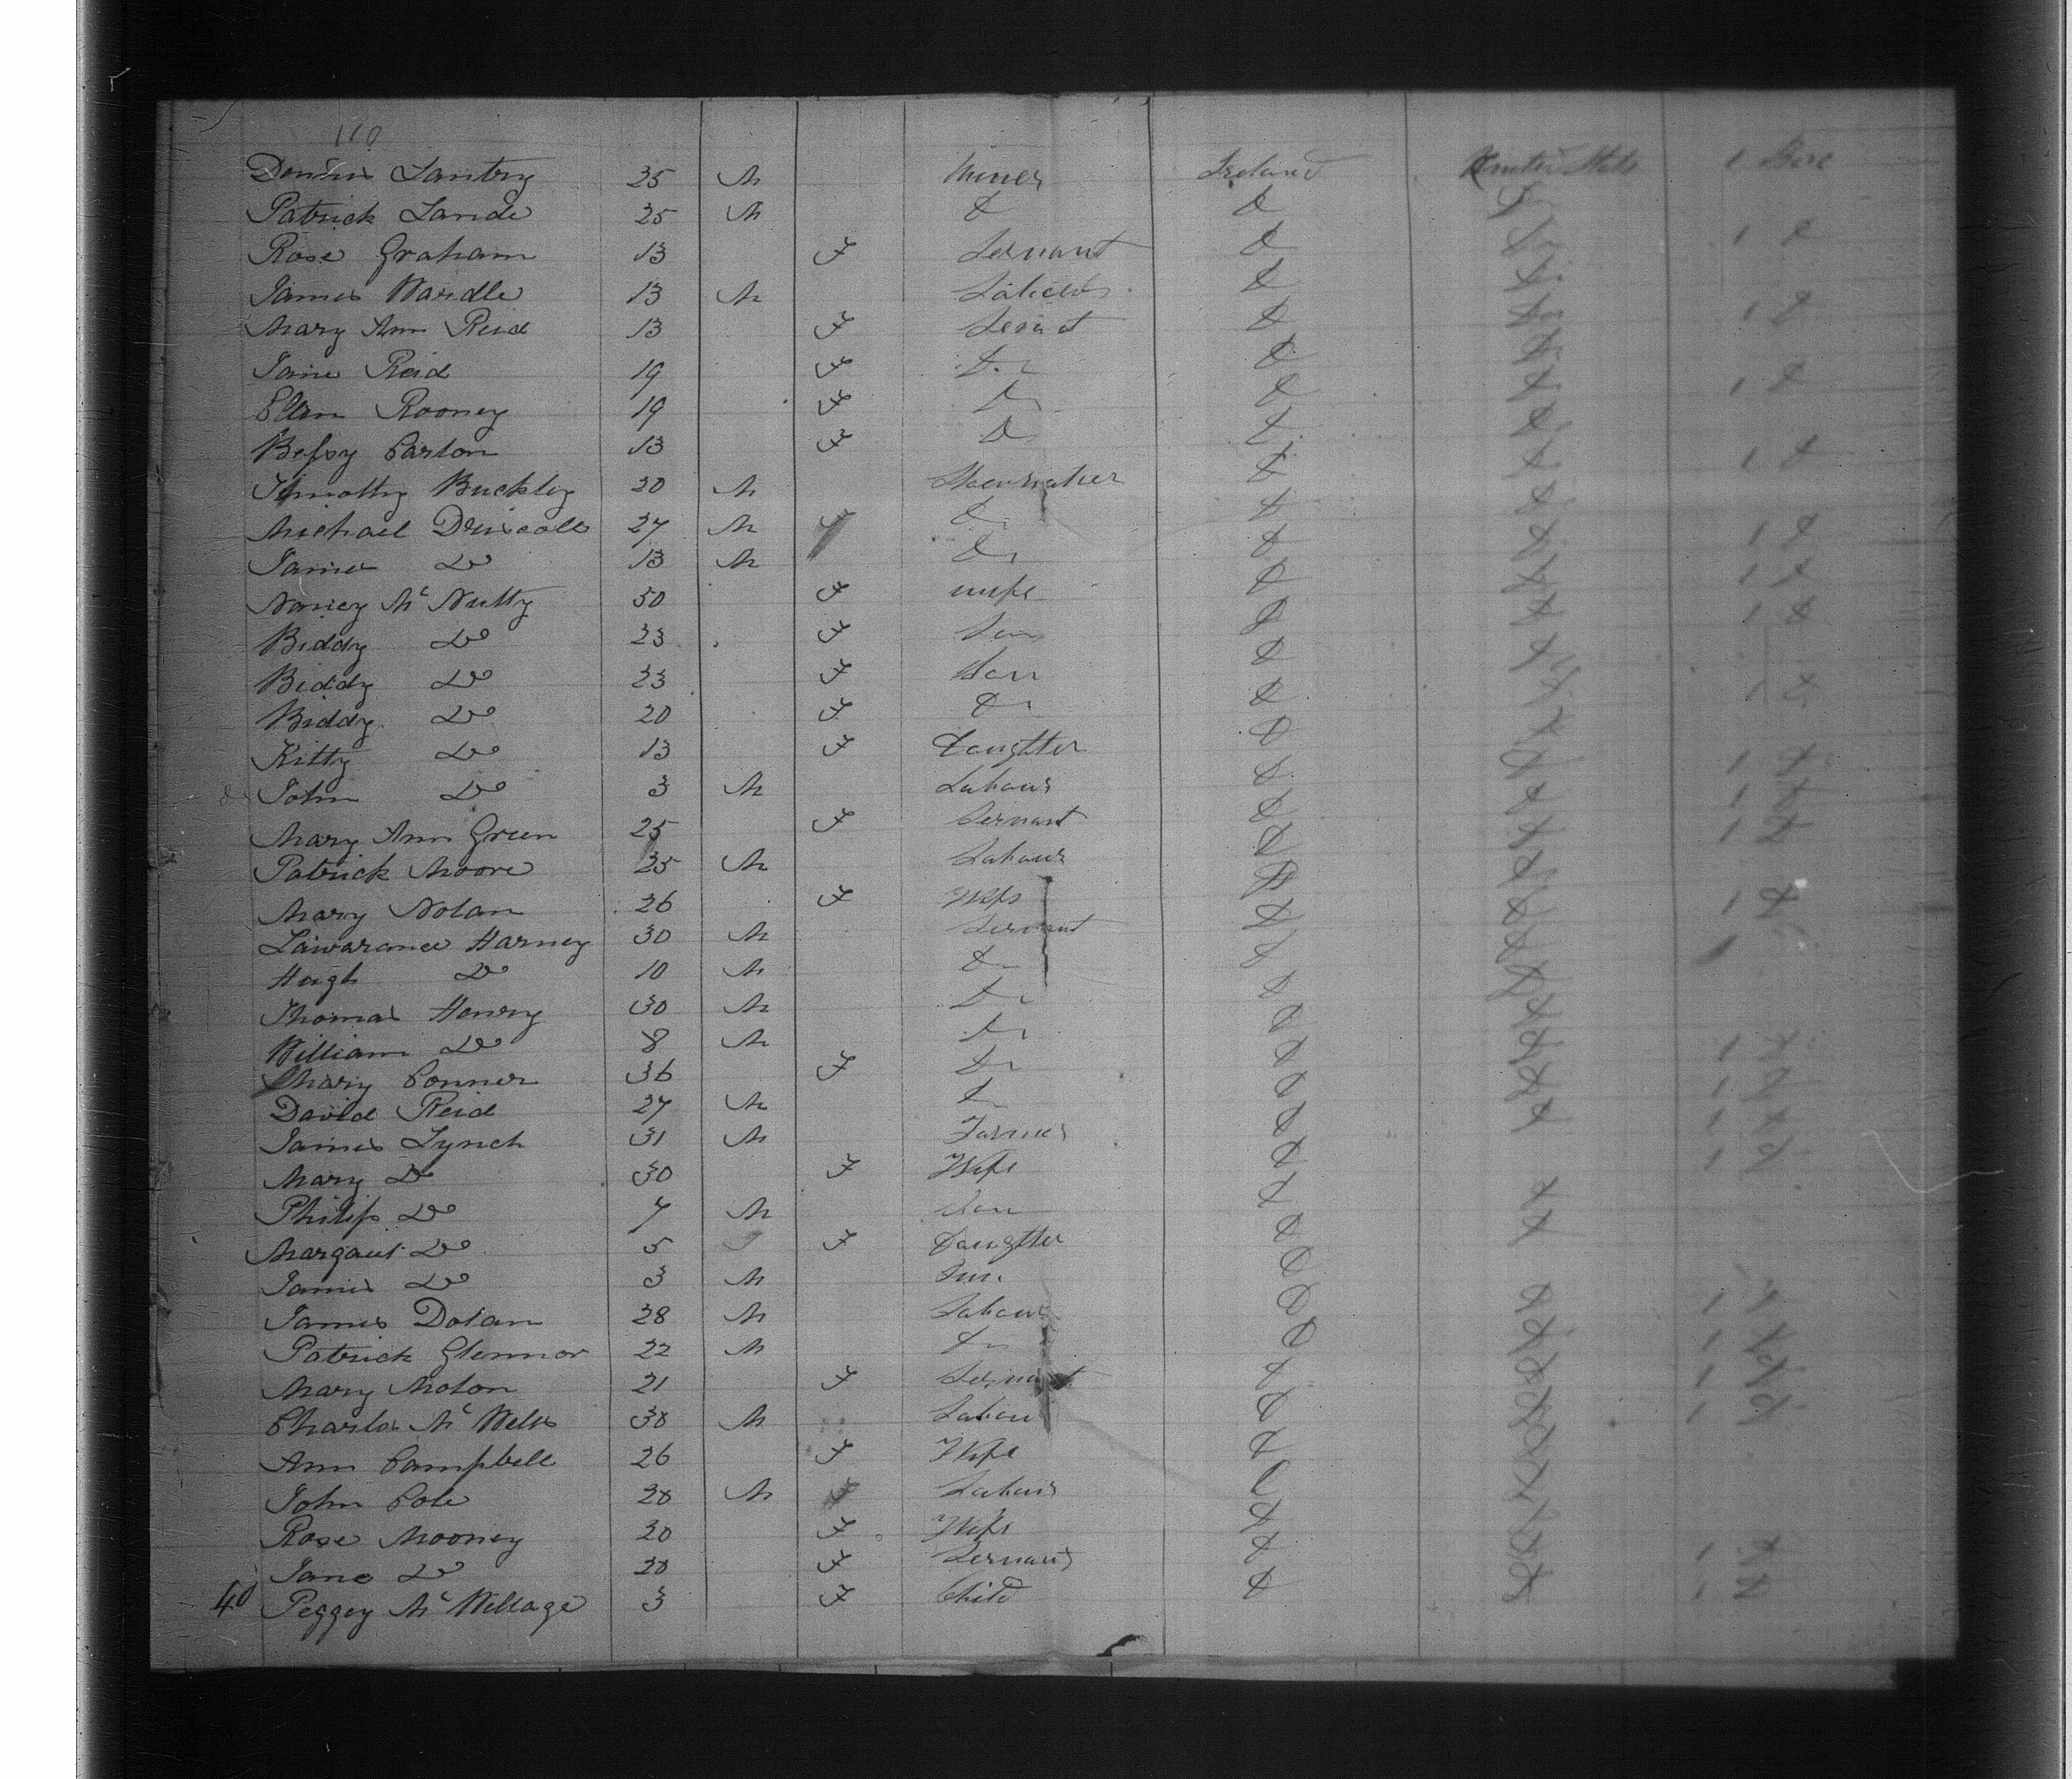 110
Dennis Lantry 25 M Miner Ireland United States 1 Box
Patrick Lande 25 M D D D
Rose Graham 13 F Servant D D 1 D
James Wardle 13 M D D
Mary Ann Reid 13 F Servant D D 1 D
Jane Reid 19 F D D D
Ellen Rooney 19 F D D D 1 D
Bessy Carlon 13 F D D D
Timothy Buckley 20 M Shoemaker D D 1 D
Michael Driscoll 27 M D D D
James Do 13 M D D D 1 D
Nancy Mc Nulty 50 F wife D D 1 D
Biddy Do 23 F D D 1 D
Biddy Do 23 F D D
Biddy Do 20 F D D D 1 D
Kitty Do 13 F Daughter D D
John Do 3 M Labour D D 1 D
Mary Ann Green 25 F Servant D D 1 D
Patrick Moore 25 M Labour D D 1 D
Mary Nolan 26 F Wife D D
Lawarance Harney 30 M Servant D D 1 D
Hugh Do 10 M D D D 1
Thomas Henry 30 M D D D
William Do 8 M D D D
Mary Conner 36 F D D D 1 D
David Reid 27 M D D D 1 D
James Lynch 31 M Farmer D D 1 D
Mary Do 30 F Wife D 1 D
Philip Do 7 M Son D D
Margaut Do 5 F Daughter D D
James Do 3 M Son D
James Dolan 28 M Labour D D 1 D
Patrick Glennor 22 M D D D 1 D
Mary Molon 21 F Servant D D 1 D
Charles Mc 30 M Labour D D 1 D
Ann Campbell 26 F Wife D D
John Cole 20 M Labour D D
Rose Mooney 20 F Wife D D
Jane Do 20 F Servant D D 1 D
40 Peggy Mc Willage 3 F Child D D 1 D